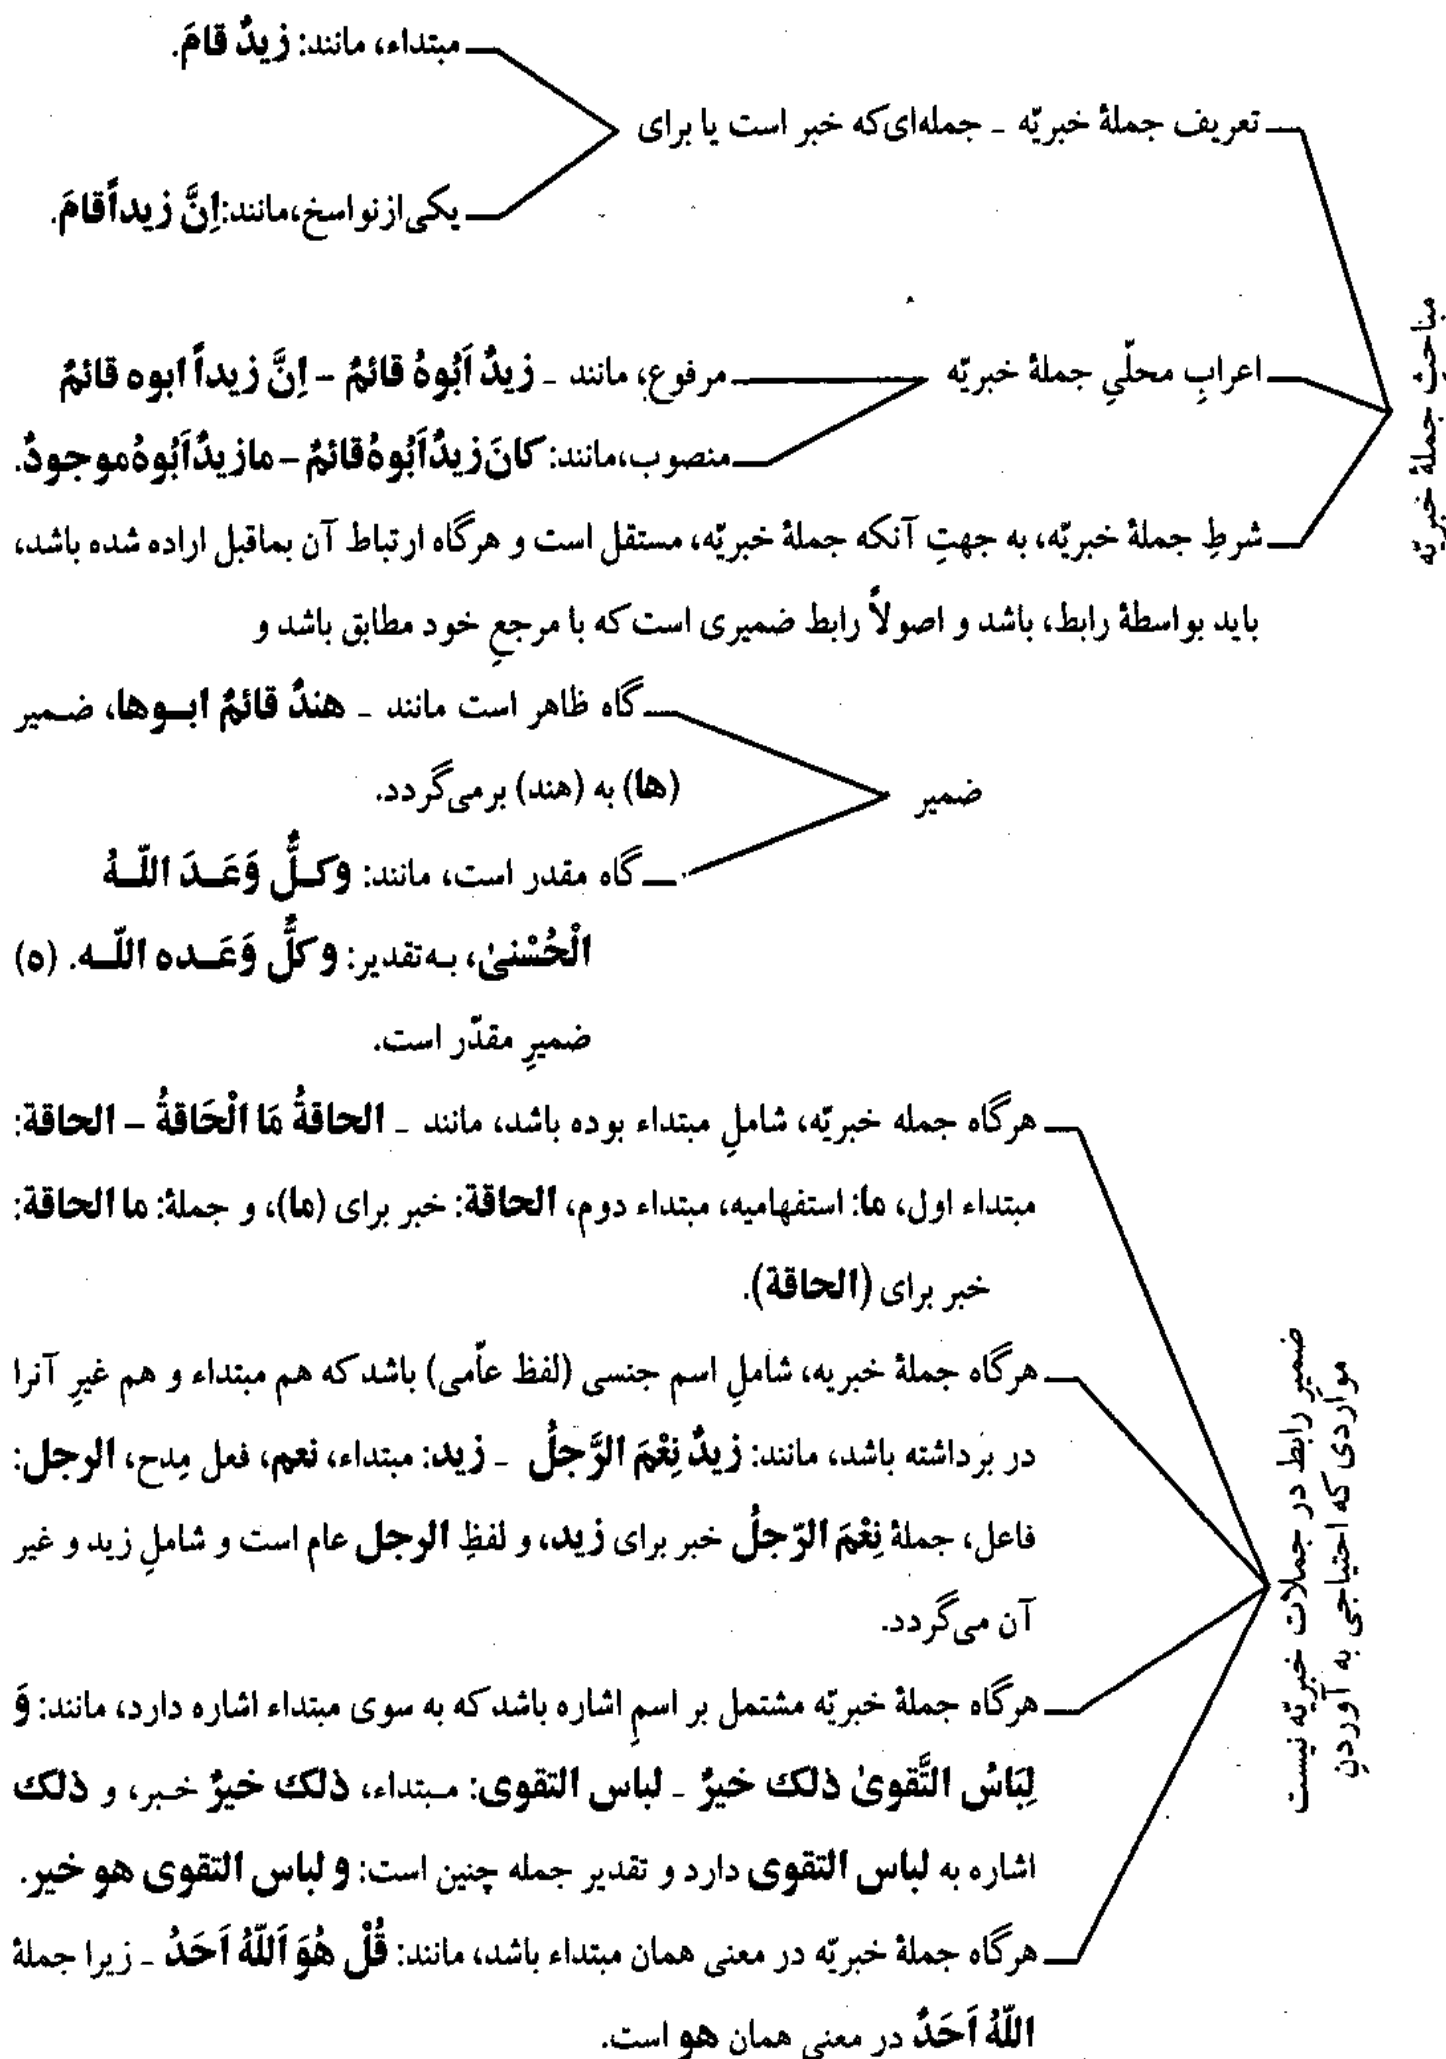 مبتداء، مانند: زیدٌ قامَ.
تعریف جملهٔ خبریّه - جمله‌ای‌که خبر است یا برای
یکی از نواسخ، مانند: اِنَّ زیداً قامَ.
مباحث جملهٔ خبریّه
اعرابِ محلّیِ جملهٔ خبریّه
مرفوع، مانند - زیدٌ اَبُوهُ قائمٌ – اِنَّ زیداً ابوه قائمٌ
منصوب، مانند: کانَ زیدٌ اَبُوهُ قائمٌ – ما زیدٌ اَبُوهُ موجودٌ.
شرطِ جملهٔ خبریّه، به جهتِ آنکه جملهٔ خبریّه، مستقل است و هرگاه ارتباط آن بماقبل اراده شده باشد،
باید بواسطهٔ رابط، باشد و اصولاً رابط ضمیری است که با مرجعِ خود مطابق باشد و
گاه ظاهر است مانند - هندٌ قائمٌ ابوها، ضمیر
(ها) به (هند) برمی‌گردد.
ضمیر
گاه مقدر است، مانند: وکلٌّ وَعَدَ اللّهُ
الْحُسْنیٰ، به‌تقدیر: وکلٌّ وَعَده اللّه. (ه)
ضمیرِ مقدّر است.
هرگاه جمله خبریّه، شاملِ مبتداء بوده باشد، مانند - الحاقةُ مَا الْحَاقةُ – الحاقة:
مبتداء اول، ما: استفهامیه، مبتداء دوم، الحاقة: خبر برای (ما)، و جملهٔ: ما الحاقة:
خبر برای (الحاقة).
هرگاه جملهٔ خبریه، شاملِ اسم جنسی (لفظ عاّمی) باشد که هم مبتداء و هم غیرِ آنرا
در برداشته باشد، مانند: زیدٌ نِعْمَ الرَّجلُ - زید: مبتداء، نعم، فعل مِدح، الرجل:
فاعل، جملهٔ نِعْمَ الرّجلُ خبر برای زید، و لفظِ الرجل عام است و شاملِ زید و غیر
آن می‌گردد.
مواردی که احتیاجی به آوردنِ
ضمیرِ رابط در جملات خبریّه نیست
هرگاه جملهٔ خبریّه مشتمل بر اسمِ اشاره باشد که به سوی مبتداء اشاره دارد، مانند: وَ
لِبَاسُ التَّقویٰ ذلک خیرٌ - لباس التقوی: مبتداء، ذلک خیرٌ خبر، و ذلک
اشاره به لباس التقوی دارد و تقدیر جمله چنین است: و لباس التقوی هو خیر.
هرگاه جملهٔ خبریّه در معنی همان مبتداء باشد، مانند: قُلْ هُوَ اَللّهُ اَحَدُ - زیرا جملهٔ
اللّهُ اَحَدٌ در معنی همان هو است.